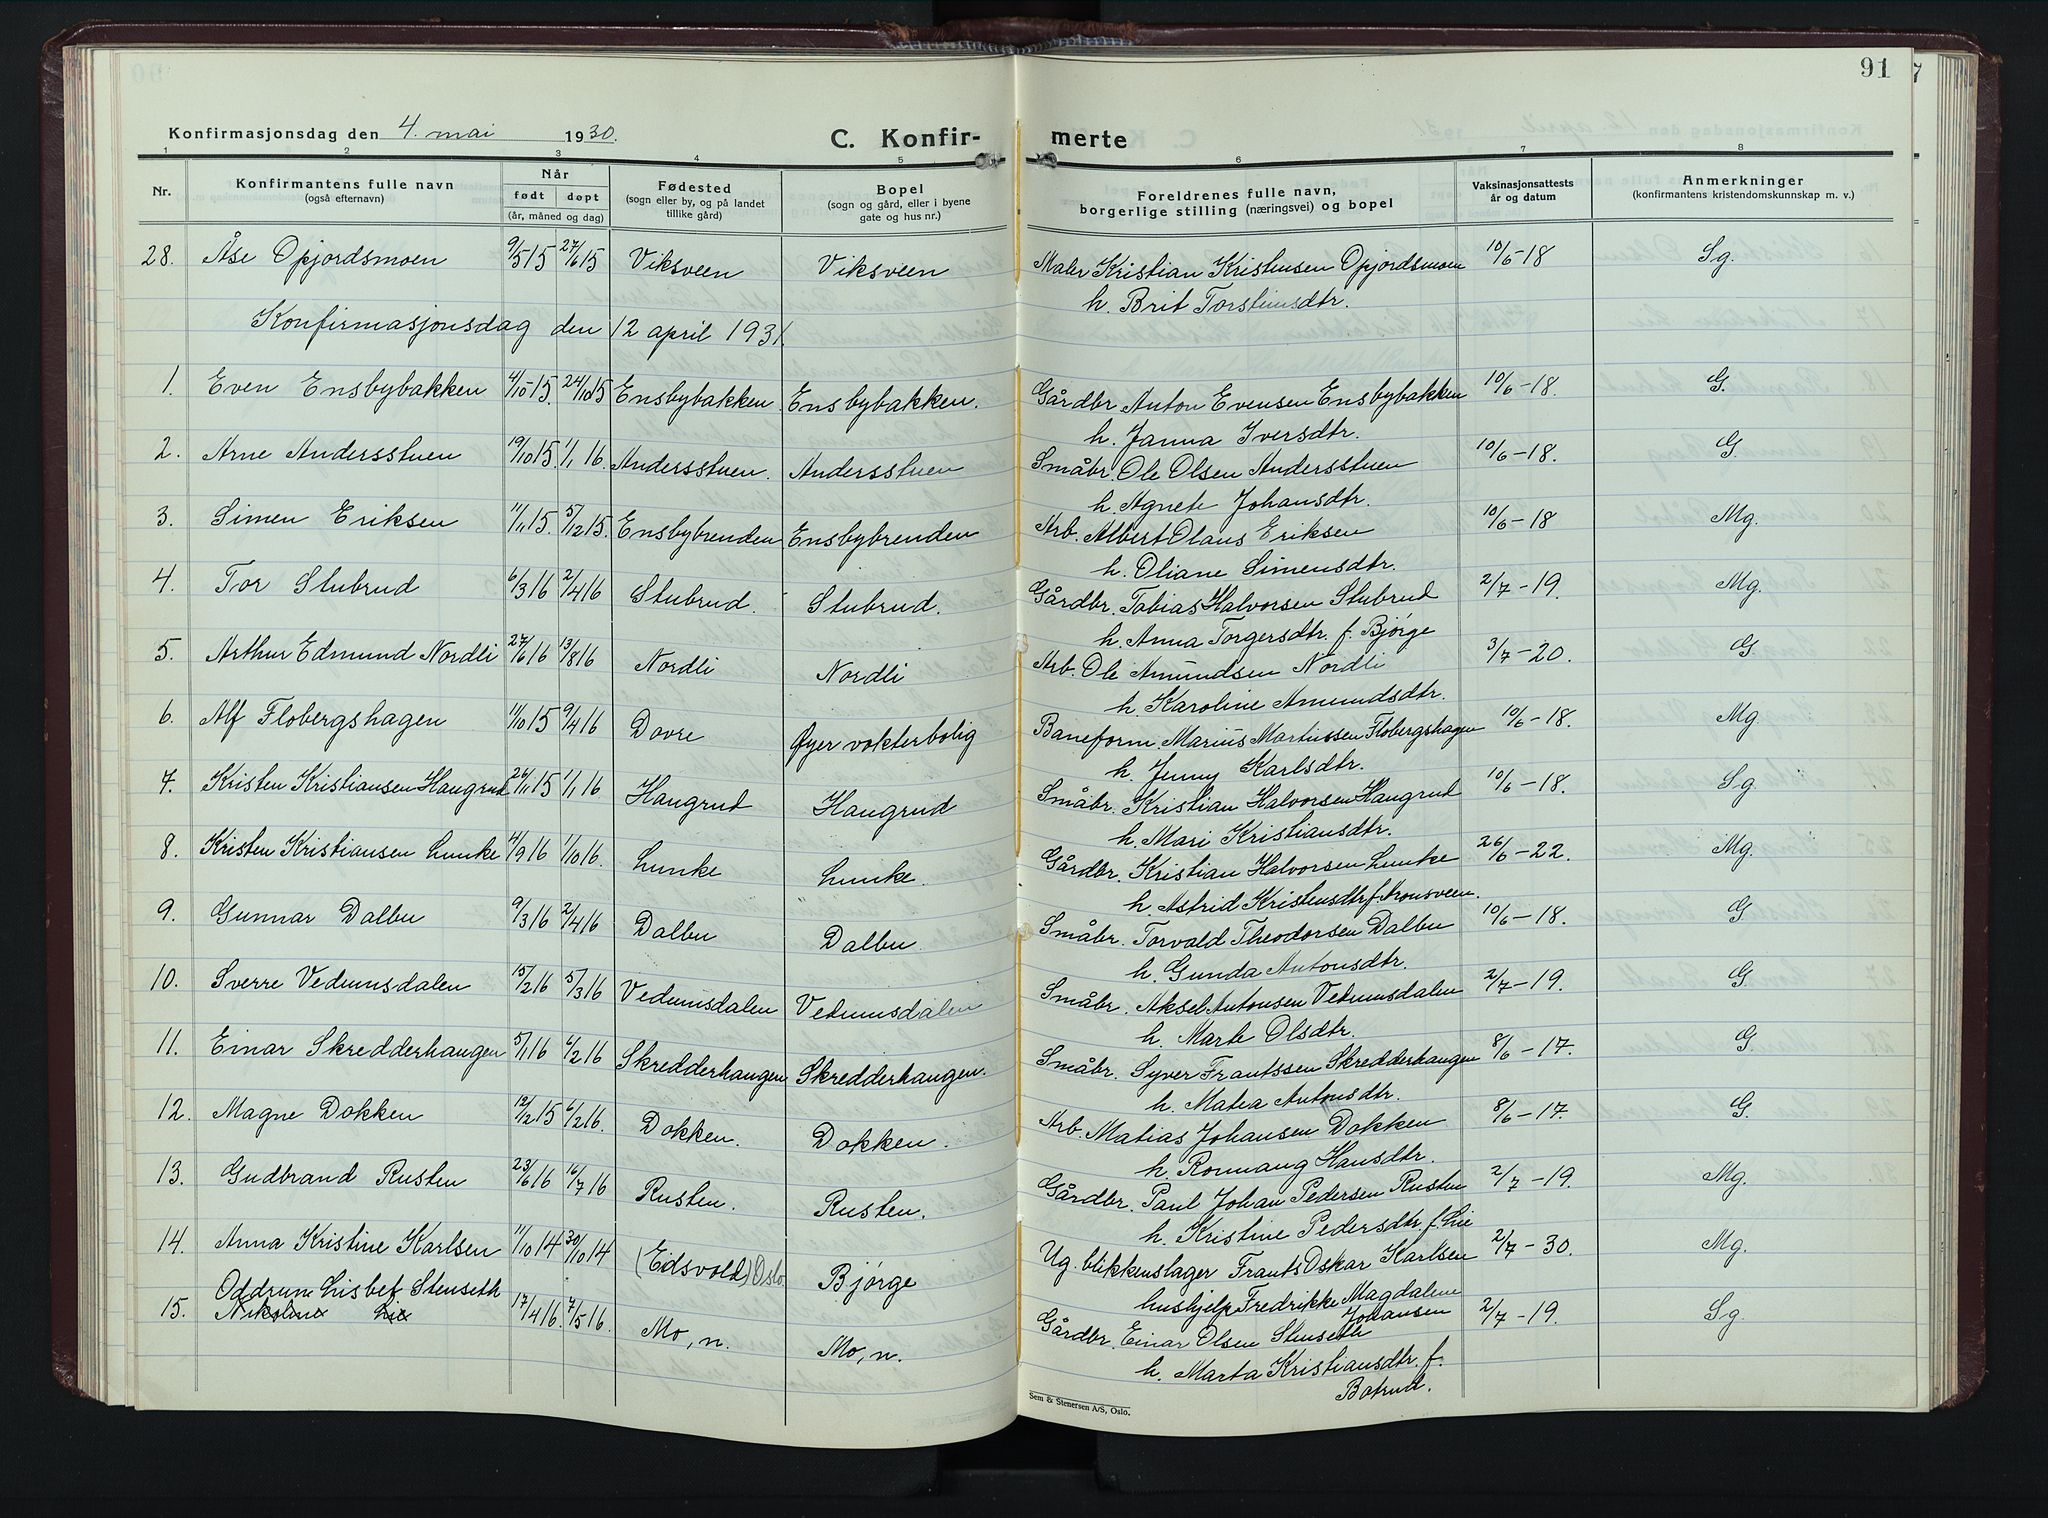 91
Konfirmasjonsdag den 4. mai 1930. C. Konfir- merte
1 2 3 4 5 6 7 8
Nr. Konfirmantens fulle navn (også efternavn) Når født døpt (år, måned og dag) Fødested (sogn eller by, og på landet tillike gård) Bopel (sogn og gård, eller i byene gate og hus nr.) Foreldrenes fulle navn, borgerlige stilling (næringsvei) og bopel Vaksinasjonsattests år og datum Anmerkninger (konfirmantens kristendomskunnskap m. v.)
28. Åse Opjordsmoen 9/5 15 27/6 15 Viksveen Viksveen Maler Kristian Kristensen Opjordsmoen 10/6-18 Sg.
h. Brit Torstensdtr.
Konfirmasjonsdag den 12 april 1931.
1. Even Ensbybakken 4/10 15. 24/10 15 Ensbybakken. Ensbybakken. Gårdbr. Anton Evensen Ensbybakken 10/6-18. G.
h. Janna Iversdtr.
2. Arne Andersstuen 19/10 15 1/1 16. Andersstuen. Andersstuen Småbr. Ole Olsen Andersstuen 10/6-18. G.
h. Agnete Johansdtr.
3. Simen Eriksen 11/11 15. 5/12 15. Ensbybrenden Ensbybrenden Arb. Albert Olaus Eriksen 10/6-18 Mg.
h. Oliane Simensdtr.
4. Tor Stubrud 6/3 16 2/4 16 Stubrud. Stubrud. Gårdbr. Tobias Halvorsen Stubrud 2/7-19. Mg.
h. Anna Torgersdtr. f. Bjørge
5. Arthur Edmund Nordli 27/6 16 13/8 16 Nordli Nordli Arb. Ole Amundsen Nordli 3/7-20. G
h. Karoline Amundsdtr.
6. Alf Flobergshagen 11/10 15 9/4 16 Dovre Øyer vokterbolig Baneform. Marius Martinssen Flobergshagen 10/6-18. Mg.
h. Jenny Karlsdtr.
7. Kristen Kristiansen Haugrud 26/11 15 1/1 16 Haugrud Haugrud Småbr. Kristian Halvorsen Haugrud 10/6-18. Sg.
h. Mari Kristiansdtr.
8. Kristen Kristiansen Lunke 4/9 16 1/10 16. Lunke Lunke. Gårdbr. Kristian Halvorsen Lunke 26/6-22. Mg.
h. Astrid Kristensdtr f.
9. Gunnar Dalbu 9/3 16 2/4 16 Dalbu Dalbu. Småbr. Torvald Theodorsen Dalbu 10/6-18. G
h. Gunda Antonsdtr.
10. Sverre Vedumsdalen 15/2 16 5/3 16 Vedumsdalen Vedumsdalen Småbr. Aksel Antonsen Vedumsdalen 2/7-19. G
h. Marte Olsdtr.
11. Einar Skredderhaugen 5/1 16 6/2 16 Skredderhaugen Skredderhaugen. Småbr. Syver Frantssen Skredderhaugen 8/6-17. G
h. Matea Antonsdtr.
12. Magne Dokken 12/12 15 6/2 16. Dokken. Dokken. Arb. Matias Johansen Dokken 8/6-17. G.
h. Ronnaug Hansdtr.
13. Gudbrand Rusten 23/6 16 16/7 16 Rusten. Rusten. Gårdbr. Paul Johan Pedersen Rusten 2/7-19. Mg.
h. Kristine Pedersdtr. f. Lie
14. Anna Kristine Karlsen 11/10 14 30/10 14 (Eidsvold) Oslo Bjørge Ug. blikkenslager Frants Oskar Karlsen 2/7-30. Mg.
hushjelp Fredrikke Magdalene Johansen
Oddrun Lisbet Stenseth
15. Nikoline Lie 17/4 16. 7/5 16. Mo, n. Mo, n. Gårdbr. Einar Olsen Stenseth 2/7-19. Sg.
h. Marta Kristiansdtr. f.
Botrud.
Sem & Stenersen A/S, Oslo.